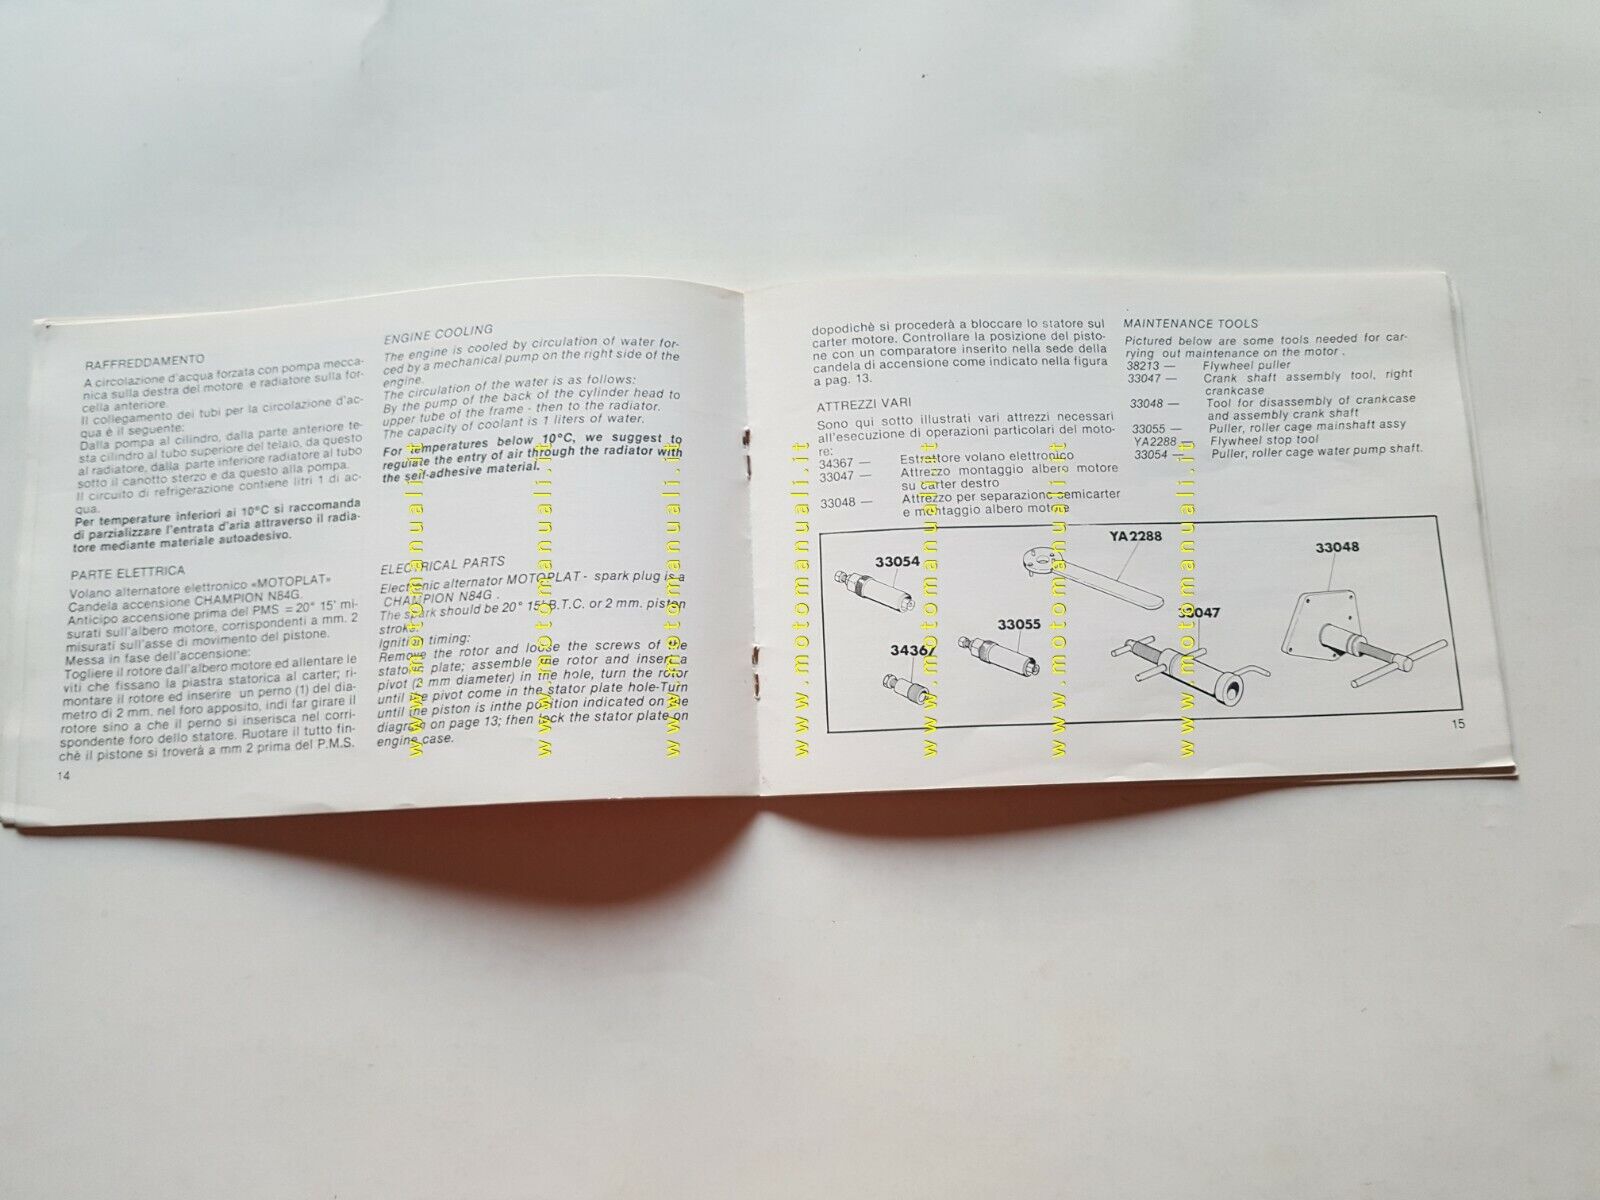 RAFFREDDAMENTO
A circolazione d'acqua forzata con pompa mecca-
nica sulla destra del motore e radiatore sulla for-
cella anteriore.
Il collegamento dei tubi per la circolazione d'ac-
qua è il seguente:
Dalla pompa al cilindro, dalla parte anteriore te-
sta cilindro al tubo superiore del telaio, da questo
al radiatore, dalla parte inferiore radiatore al tubo
sotto il canotto sterzo e da questo alla pompa.
Il circuito di refrigerazione contiene litri 1 di ac-
qua.
Per temperature inferiori ai 10°C si raccomanda
di parzializzare l'entrata d'aria attraverso il radia-
tore mediante materiale autoadesivo.
PARTE ELETTRICA
Volano alternatore elettronico «MOTOPLAT»
Candela accensione CHAMPION N84G.
Anticipo accensione prima del PMS = 20° 15' mi-
surati sull'albero motore, corrispondenti a mm. 2
misurati sull'asse di movimento del pistone.
Messa in fase dell'accensione:
Togliere il rotore dall'albero motore ed allentare le
viti che fissano la piastra statorica al carter; ri-
montare il rotore ed inserire un perno (1) del dia-
metro di 2 mm. nel foro apposito, indi far girare il
rotore sino a che il perno si inserisca nel corri-
spondente foro dello statore. Ruotare il tutto fin-
chè il pistone si troverà a mm 2 prima del P.M.S.
14
ENGINE COOLING
The engine is cooled by circulation of water for-
ced by a mechanical pump on the right side of the
engine.
The circulation of the water is as follows:
By the pump of the back of the cylinder head to
upper tube of the frame - then to the radiator.
The capacity of coolant is 1 liters of water.
For temperatures below 10°C, we suggest to
regulate the entry of air through the radiator with
the self-adhesive material.
ELECTRICAL PARTS
Electronic alternator MOTOPLAT - spark plug is a
CHAMPION N84G .
The spark should be 20° 15' B.T.C. or 2 mm. piston
stroke.
Ignition timing:
Remove the rotor and loose the screws of the
statoric plate; assemble the rotor and insert a
pivot (2 mm diameter) in the hole, turn the rotor
until the pivot come in the stator plate hole-Turn
until the piston is inthe position indicated on the
diagram on page 13; then lock the stator plate on
engine case.
dopodichè si procederà a bloccare lo statore sul
carter motore. Controllare la posizione del pisto-
ne con un comparatore inserito nella sede della
candela di accensione come indicato nella figura
a pag. 13.
ATTREZZI VARI
Sono qui sotto illustrati vari attrezzi necessari
all'esecuzione di operazioni particolari del moto-
re:
34367 — Estrattore volano elettronico
33047 — Attrezzo montaggio albero motore
su carter destro
33048 — Attrezzo per separazione semicarter
e montaggio albero motore
MAINTENANCE TOOLS
Pictured below are some tools needed for car-
rying out maintenance on the motor .
38213 — Flywheel puller
33047 — Crank shaft assembly tool, right
crankcase
33048 — Tool for disassembly of crankcase
and assembly crank shaft
33055 — Puller, roller cage mainshaft assy
YA2288 — Flywheel stop tool
33054 — Puller, roller cage water pump shaft.
33054
YA2288
33048
33055
33047
34367
15
www.motomanuali.it
www.motomanuali.it
www.motomanuali.it
www.motomanuali.it
www.motomanuali.it
www.motomanuali.it
www.motomanuali.it